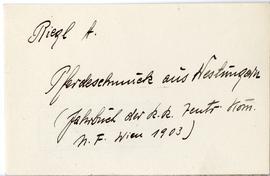 Riegl A.
Pferdeschmuck aus Westungarn
(Jahrbuch der k.k. Zentr. Kom.
N. F. Wien 1903)